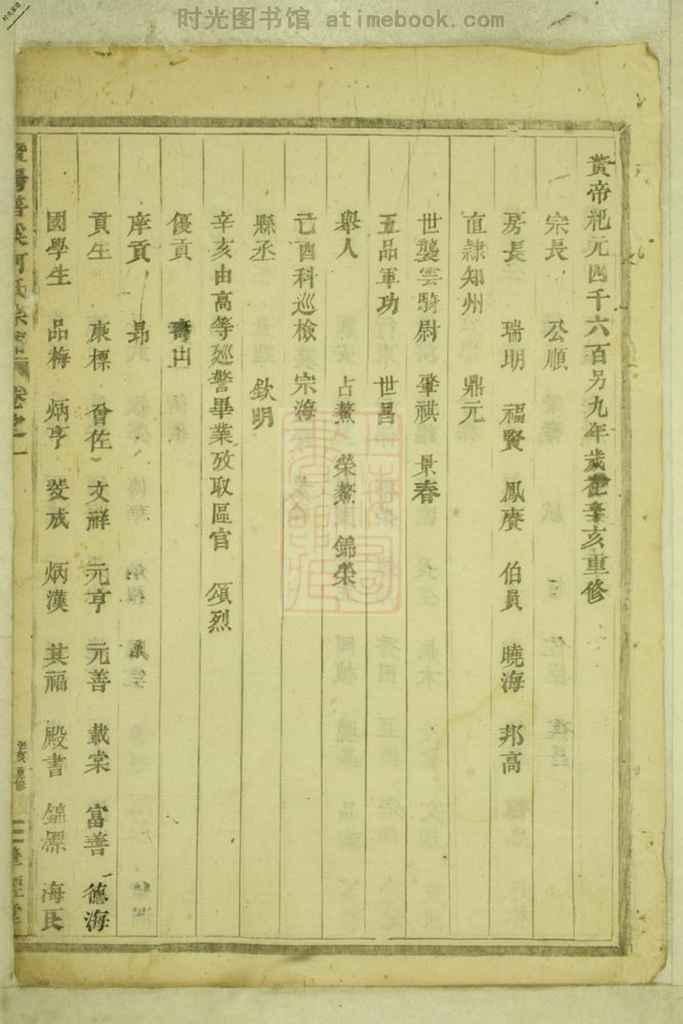 时光图书馆 atimebook.com
黃帝紀元四千六百另九年歲在辛亥重修
宗長 公順
房長 瑞玥 福賢 鳳賡 伯員 曉海 邦高
直隸知州 鼎元
世襲雲騎尉 肇祺 景春
五品軍功 世昌
舉人 占鰲 榮鰲 錦榮
己酉科巡檢 宗海
縣丞 欽明
辛亥由高等廵警畢業攷取區官 頌烈
優貢
庠貢 昂
貢生 東標 會佐 文祥 元亨 元善 載棠 富善 德海
國學生 品梅 炳亨 發成 炳漢 其福 殿書 錦標 海民
辛亥重修